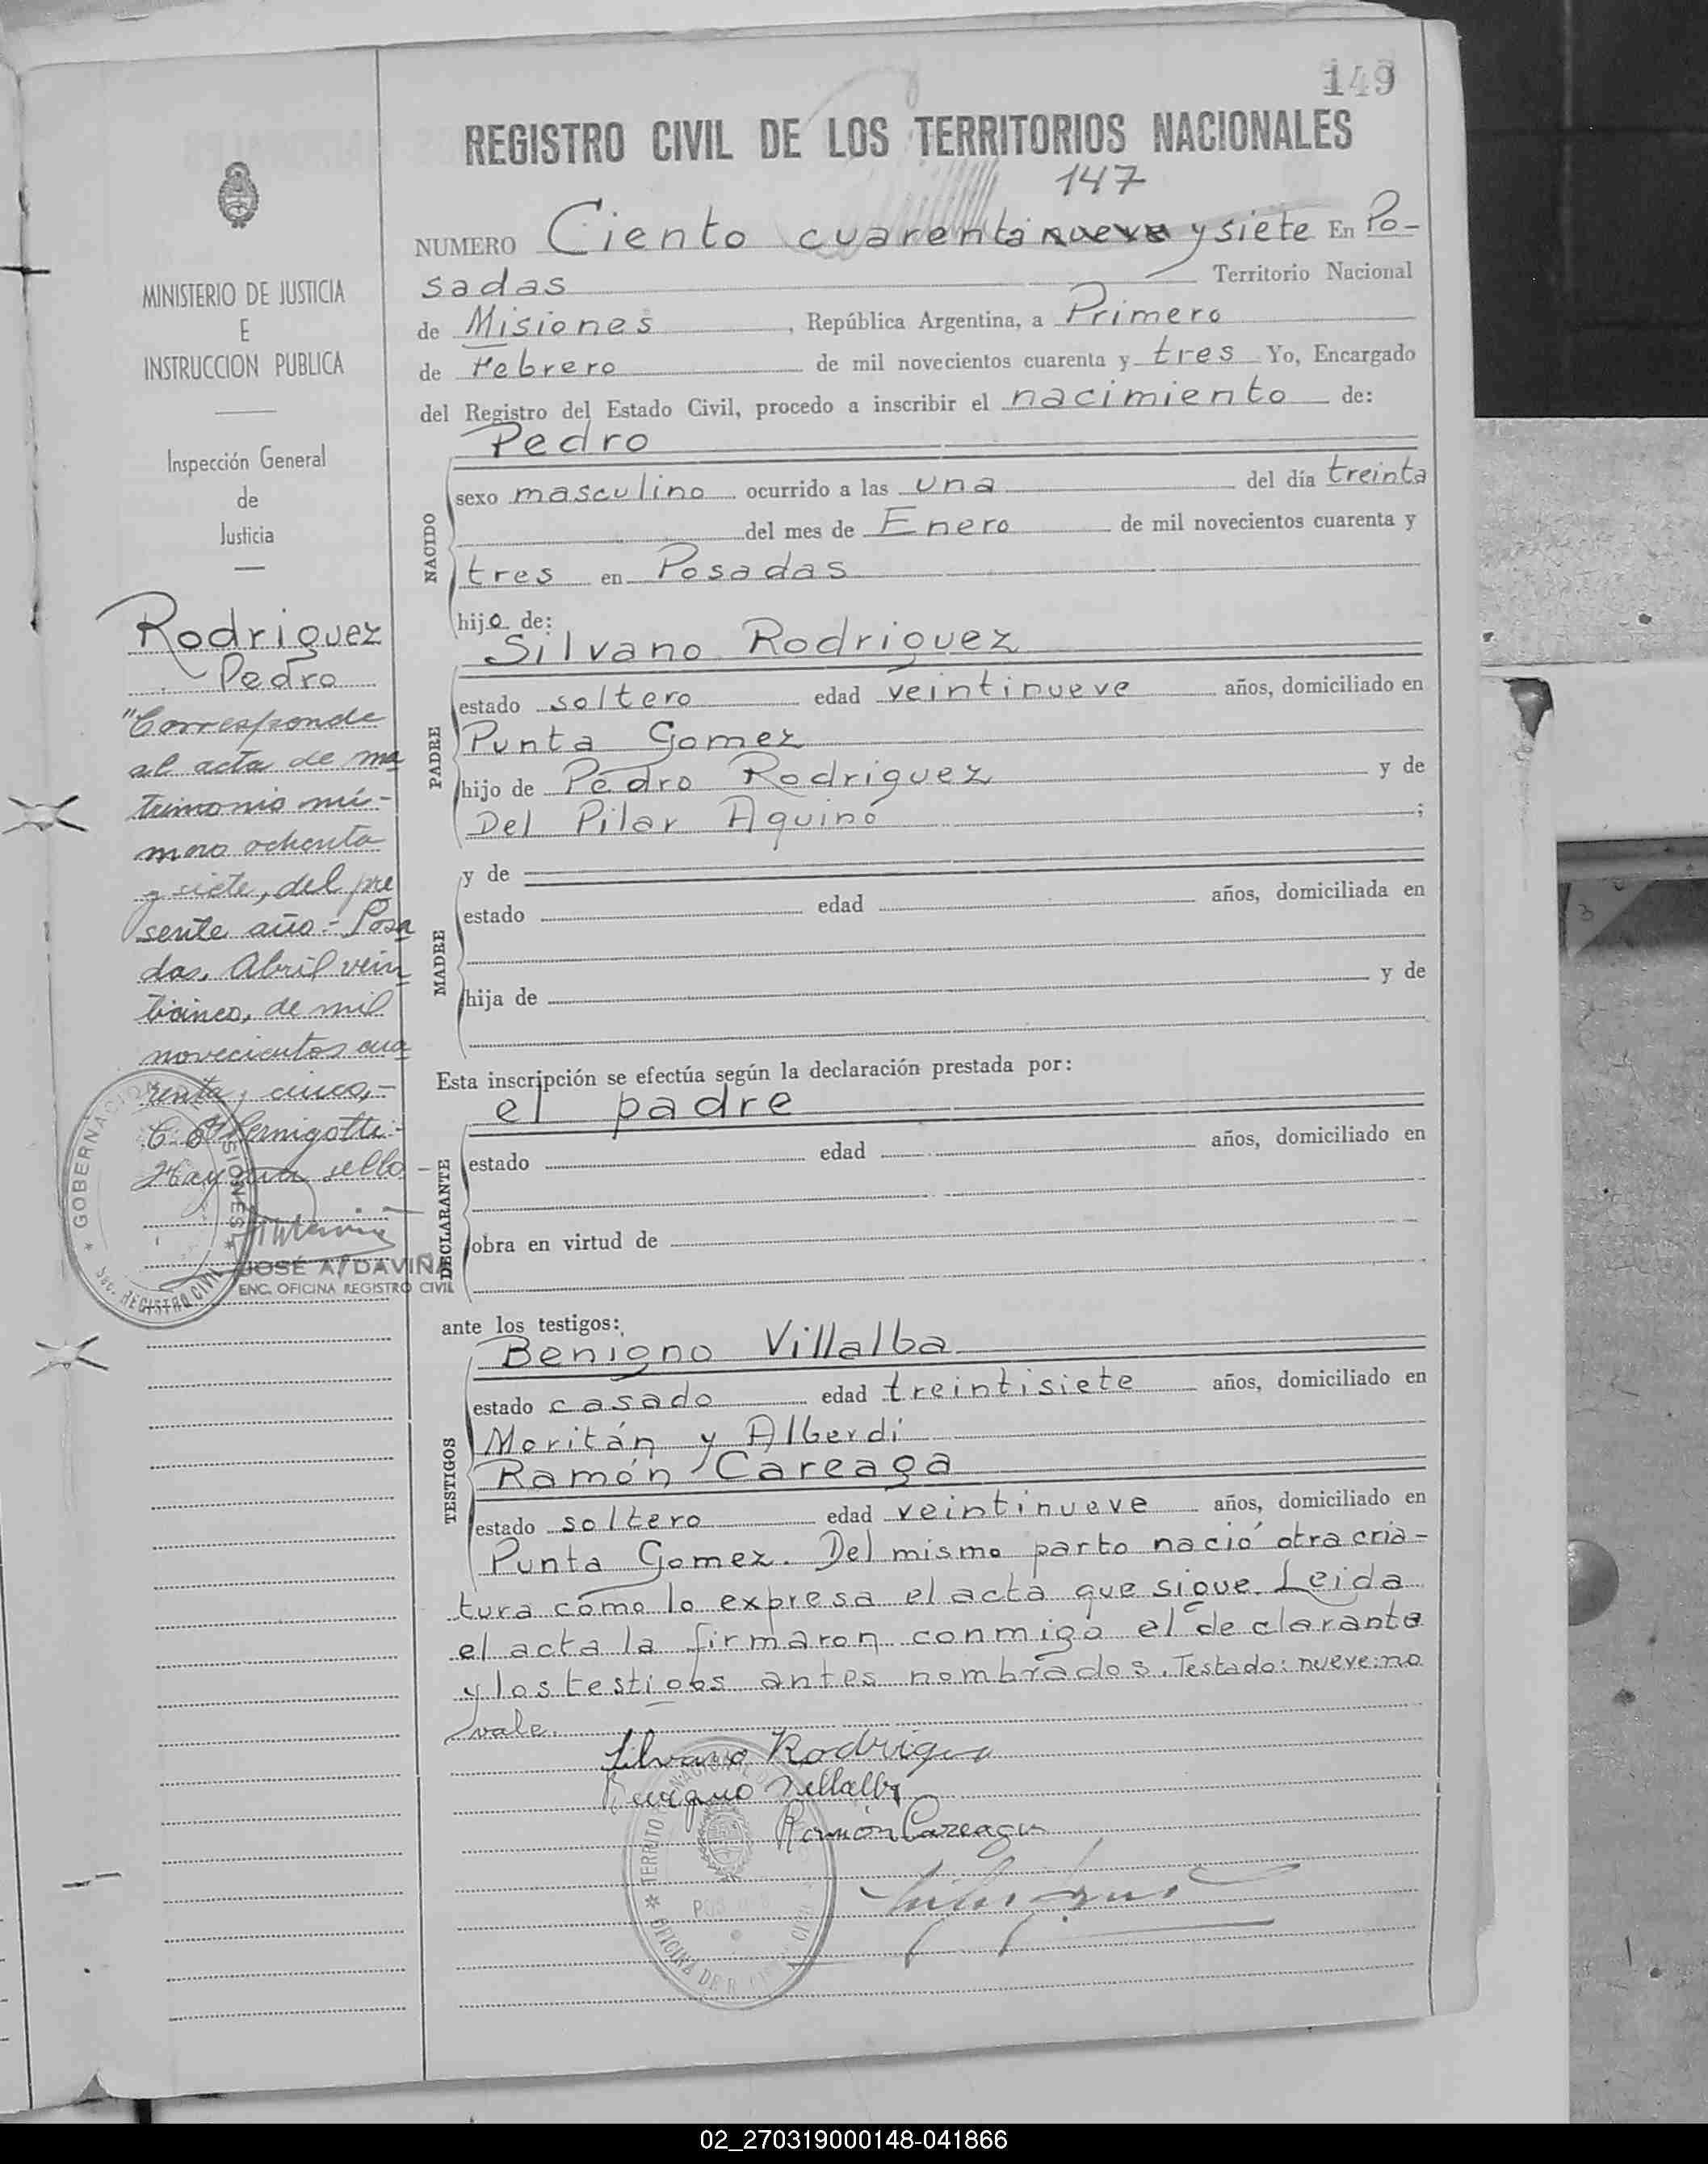 149
REGISTRO CIVIL DE LOS TERRITORIOS NACIONALES
147
NUMERO Ciento cuarenta nueve y siete En Po-
sadas Territorio Nacional
de Misiones, República Argentina, a Primero
de Febrero de mil novecientos cuarenta y tres Yo, Encargado
del Registro del Estado Civil, procedo a inscribir el nacimiento de:
MINISTERIO DE JUSTICIA
E
INSTRUCCION PUBLICA
Inspección General
de
Justicia
Rodriguez
Pedro
"Corresponde
al acta de ma
trimonio nú-
mero ochenta
y siete, del pre
sente año.- Posa
das, Abril vein
ticinco, de mil
novecientos cua
renta y cinco,-
Hay un sello-
GOBERNACION MISIONES
Sec. REGISTRO CIVIL
JOSÉ A. DAVIÑA
ENC. OFICINA REGISTRO CIVIL
NACIDO
Pedro
sexo masculino ocurrido a las una del día treinta
del mes de Enero de mil novecientos cuarenta y
tres en Posadas
hijo de:
PADRE
Silvano Rodriguez
estado soltero edad veintinueve años, domiciliado en
Punta Gomez
hijo de Pedro Rodriguez y de
Del Pilar Aquino ;
MADRE
y de
estado edad años, domiciliada en
hija de y de
Esta inscripción se efectúa según la declaración prestada por:
DECLARANTE
el padre
estado edad años, domiciliado en
obra en virtud de
ante los testigos:
TESTIGOS
Benigno Villalba
estado casado edad treintisiete años, domiciliado en
Moritán y Alberdi
Ramón Careaga
estado soltero edad veintinueve años, domiciliado en
Punta Gomez. Del mismo parto nació otra cria-
tura cómo lo expresa el acta que sigue. Leida
el acta la firmaron conmigo el declarante
y los testigos antes nombrados. Testado: nueve: no
vale.
Silvano Rodriguez
Benigno Villalba
Ramón Careaga
TERRITORIO NACIONAL
OFICINA DE
02_270319000148-041866